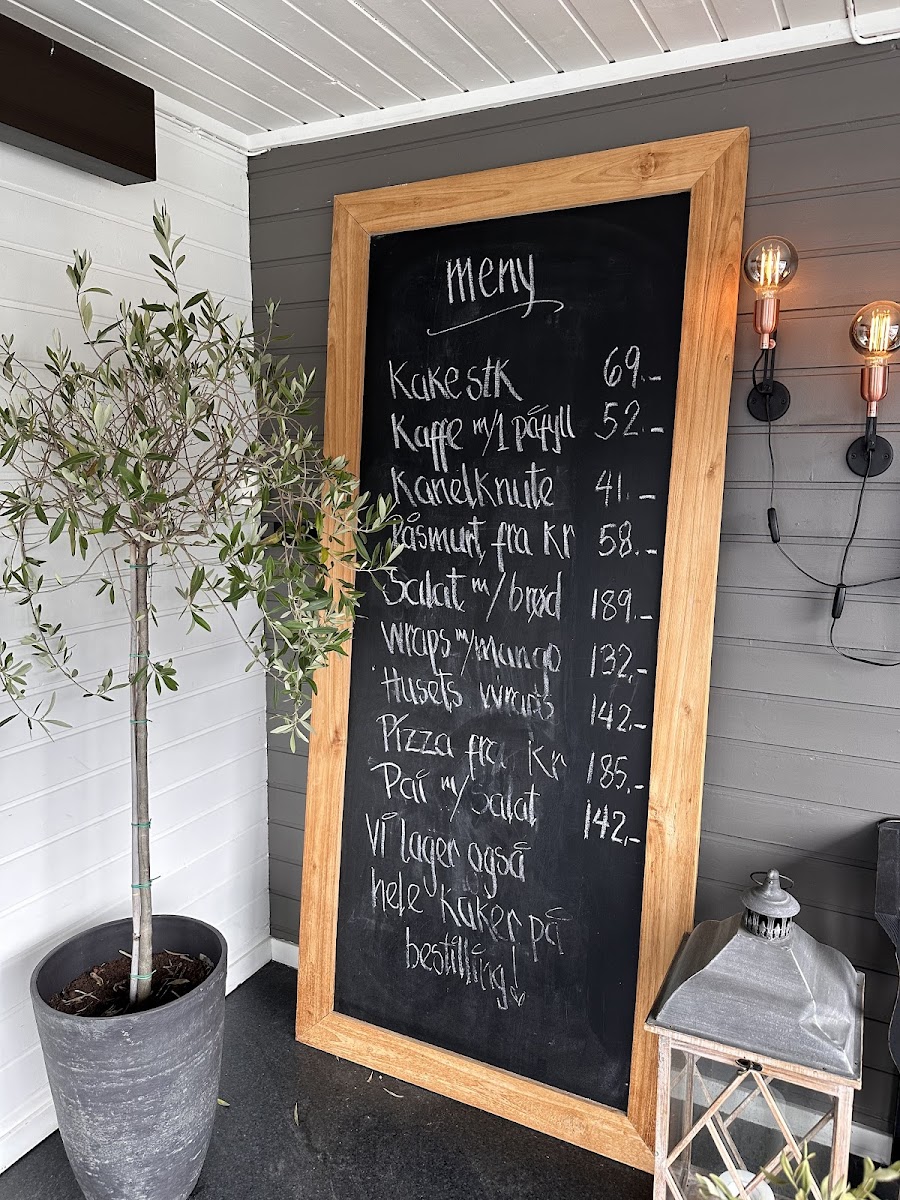 meny
Kake stk 69.-
Kaffe m/1 påfyll 52.-
Kanelknute 41.-
Påsmurt, fra kr 58.-
Salat m/brød 189.-
wraps m/mango 132,-
Husets wraps 142,-
Pizza fra kr 185,-
Pai m/salat 142,-
Vi lager også
hele kaker på
bestilling!